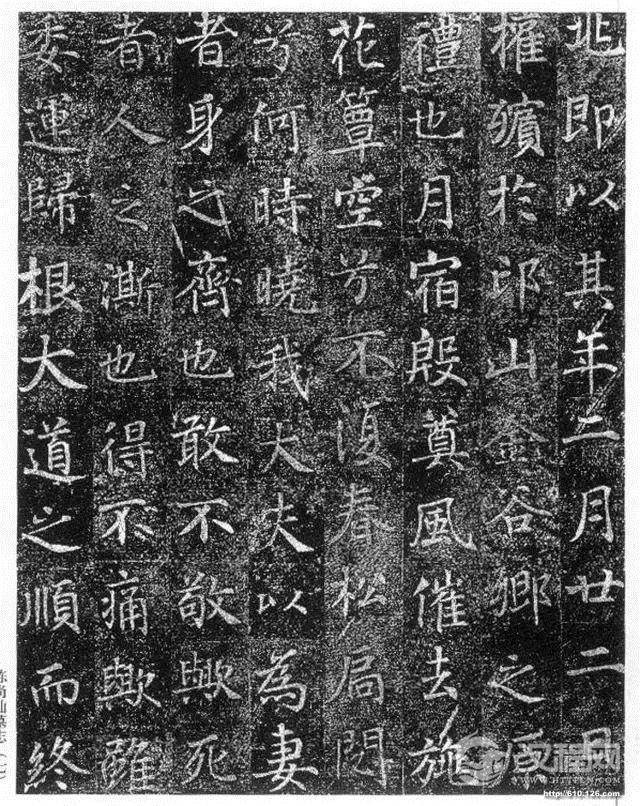 即以其年二月廿二日
權殯於邙山金谷鄉之原
禮也月宿殷奠風催去
花簟空兮不復春松扃閇
兮何時曉我大夫以為妻
者身之齊也敢不敬歟死
者人之澌也得不痛歟雖
委運歸根大道之順而終
陈尚仙墓志
http://610.126.com